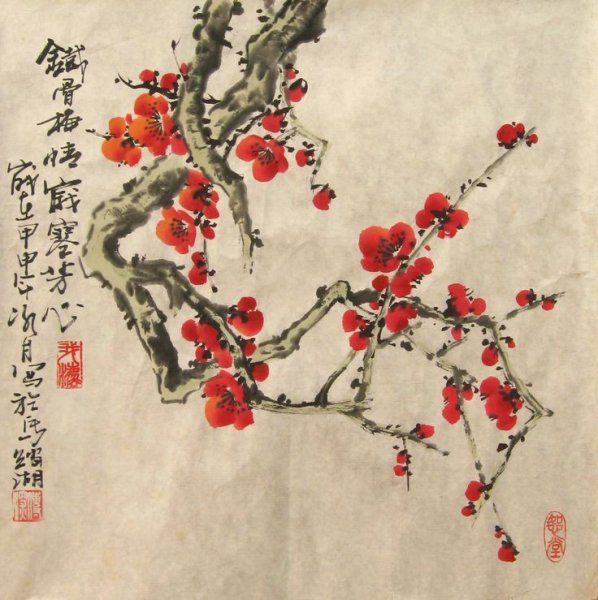 鐵骨梅情歲寒芳心
歲在甲申年月寫於馬湖